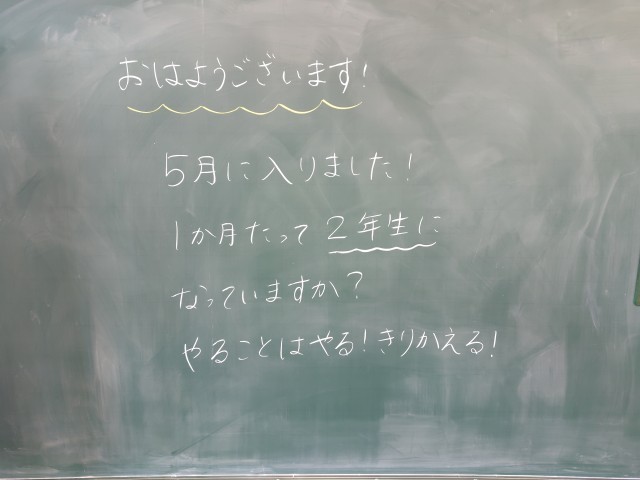 おはようございます!
5月に入りました!
1か月たって2年生に
なっていますか?
やることはやる!きりかえる!